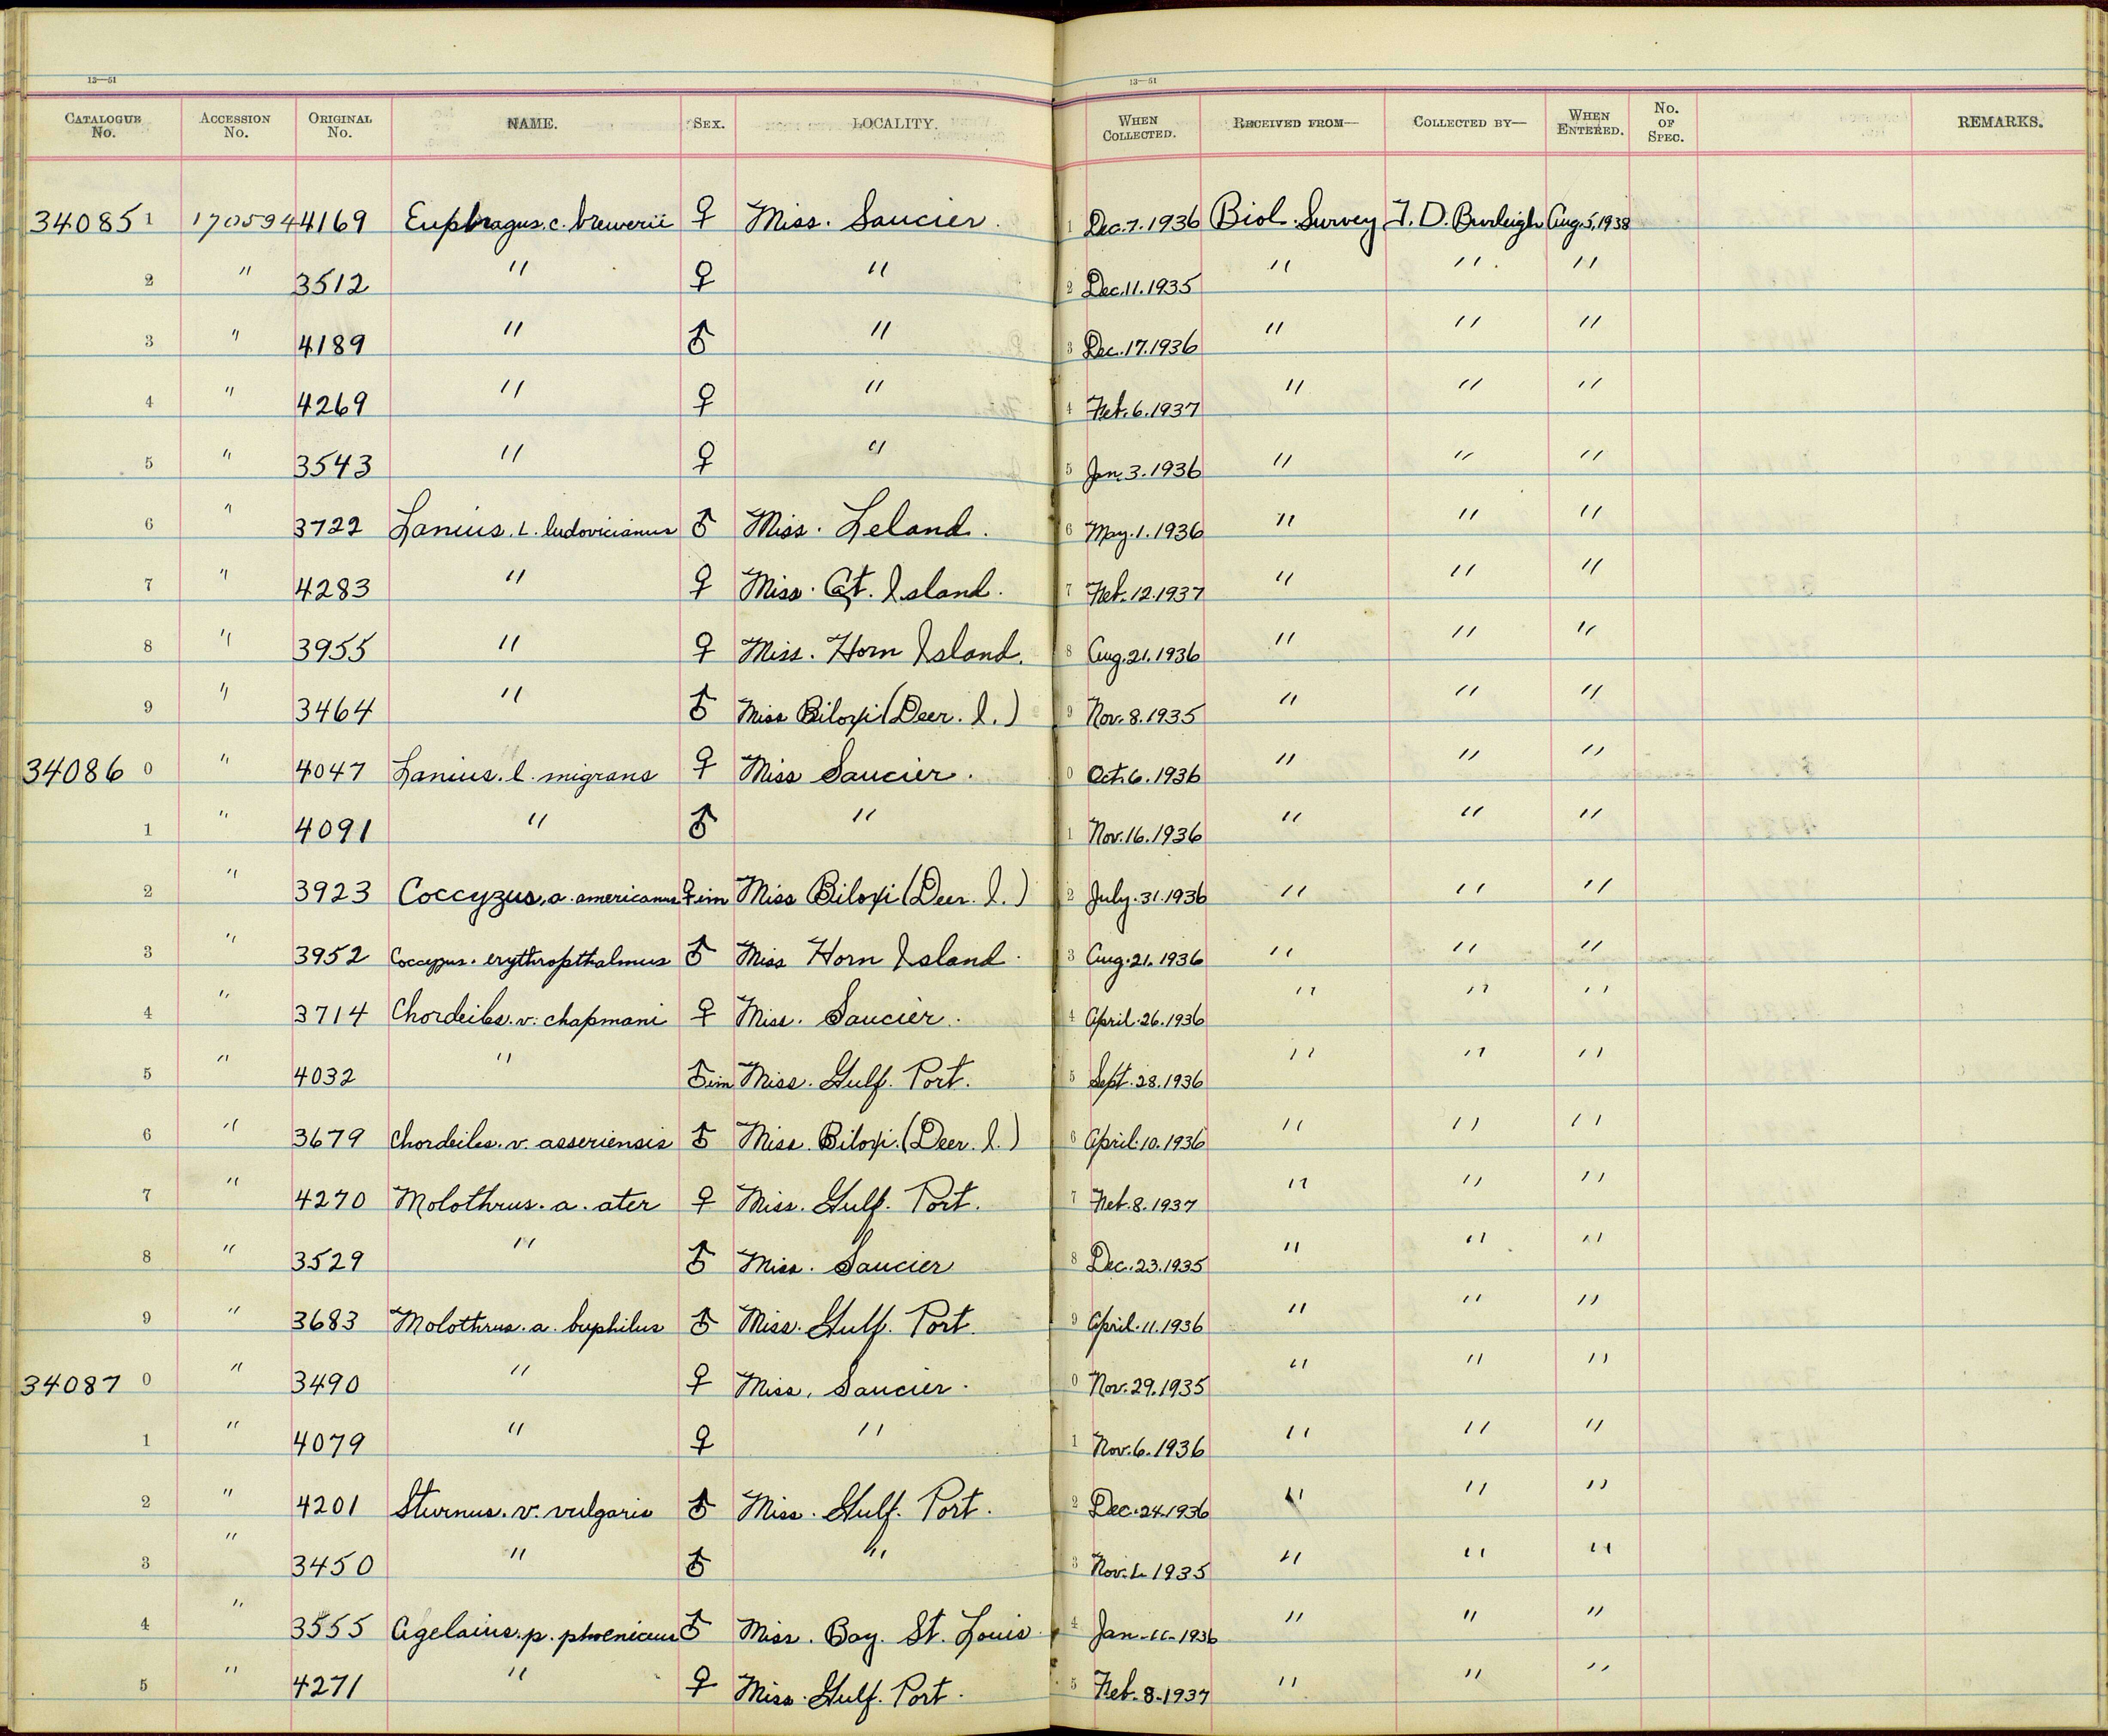 13—51 13—51
CATALOGUE No. ACCESSION No. ORIGINAL No. NAME. SEX. LOCALITY. WHEN COLLECTED. RECEIVED FROM— COLLECTED BY— WHEN ENTERED. No. OF SPEC. REMARKS.
34085 1 170594 4169 Euphragus. c. brewerii ♀ Miss. Saucier. 1 Dec. 7. 1936 Biol. Survey T. D. Burleigh Aug. 5, 1938
2 " 3512 " ♀ " 2 Dec. 11. 1935 " " "
3 " 4189 " ♂ " 3 Dec. 17. 1936 " " "
4 " 4269 " ♀ " 4 Feb. 6. 1937 " " "
5 " 3543 " ♀ " 5 Jan 3. 1936 " " "
6 " 3722 Lanius. L. ludovicianus ♂ Miss. Leland. 6 May. 1. 1936 " " "
7 " 4283 " ♀ Miss. Cat. Island. 7 Feb. 12. 1937 " " "
8 " 3955 " ♀ Miss. Horn Island. 8 Aug. 21. 1936 " " "
9 " 3464 " ♂ Miss Biloxi (Deer. I.) 9 Nov. 8. 1935 " " "
34086 0 " 4047 Lanius. l. migrans ♀ Miss Saucier. 0 Oct. 6. 1936 " " "
1 " 4091 " ♂ " 1 Nov. 16. 1936 " " "
2 " 3923 Coccyzus. a. americanus ♀ im Miss Biloxi (Deer. I.) 2 July. 31. 1936 " " "
3 " 3952 Coccyzus. erythropthalmus ♂ Miss Horn Island. 3 Aug. 21. 1936 " " "
4 " 3714 Chordeiles. v. chapmani ♀ Miss. Saucier. 4 April. 26. 1936 " " "
5 " 4032 " ♂ im Miss. Gulf. Port. 5 Sept. 28. 1936 " " "
6 " 3679 Chordeiles. v. asseriensis ♂ Miss. Biloxi. (Deer. I.) 6 April. 10. 1936 " " "
7 " 4270 Molothrus. a. ater ♀ Miss. Gulf. Port. 7 Feb. 8. 1937 " " "
8 " 3529 " ♂ Miss. Saucier 8 Dec. 23. 1935 " " "
9 " 3683 Molothrus. a. buphilus ♂ Miss. Gulf. Port. 9 April. 11. 1936 " " "
34087 0 " 3490 " ♀ Miss. Saucier. 0 Nov. 29. 1935 " " "
1 " 4079 " ♀ " 1 Nov. 6. 1936 " " "
2 " 4201 Sturnus. v. vulgaris ♂ Miss. Gulf. Port. 2 Dec. 24. 1936 " " "
3 " 3450 " ♂ " 3 Nov. 1. 1935 " " "
4 " 3555 Agelaius. p. phoeniceus ♂ Miss. Bay. St. Louis. 4 Jan. 1936 " " "
5 " 4271 " ♀ Miss. Gulf. Port. 5 Feb. 8. 1937 " " "